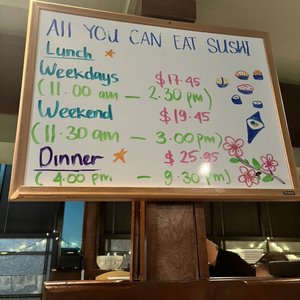 All YOU CAN EAT SUSHI
Lunch
Weekdays $17.45
(11.00 am — 2.30 pm)
Weekend $19.45
(11.30 am — 3.00 pm)
Dinner $25.95
(4.00 pm — 9.30 pm)